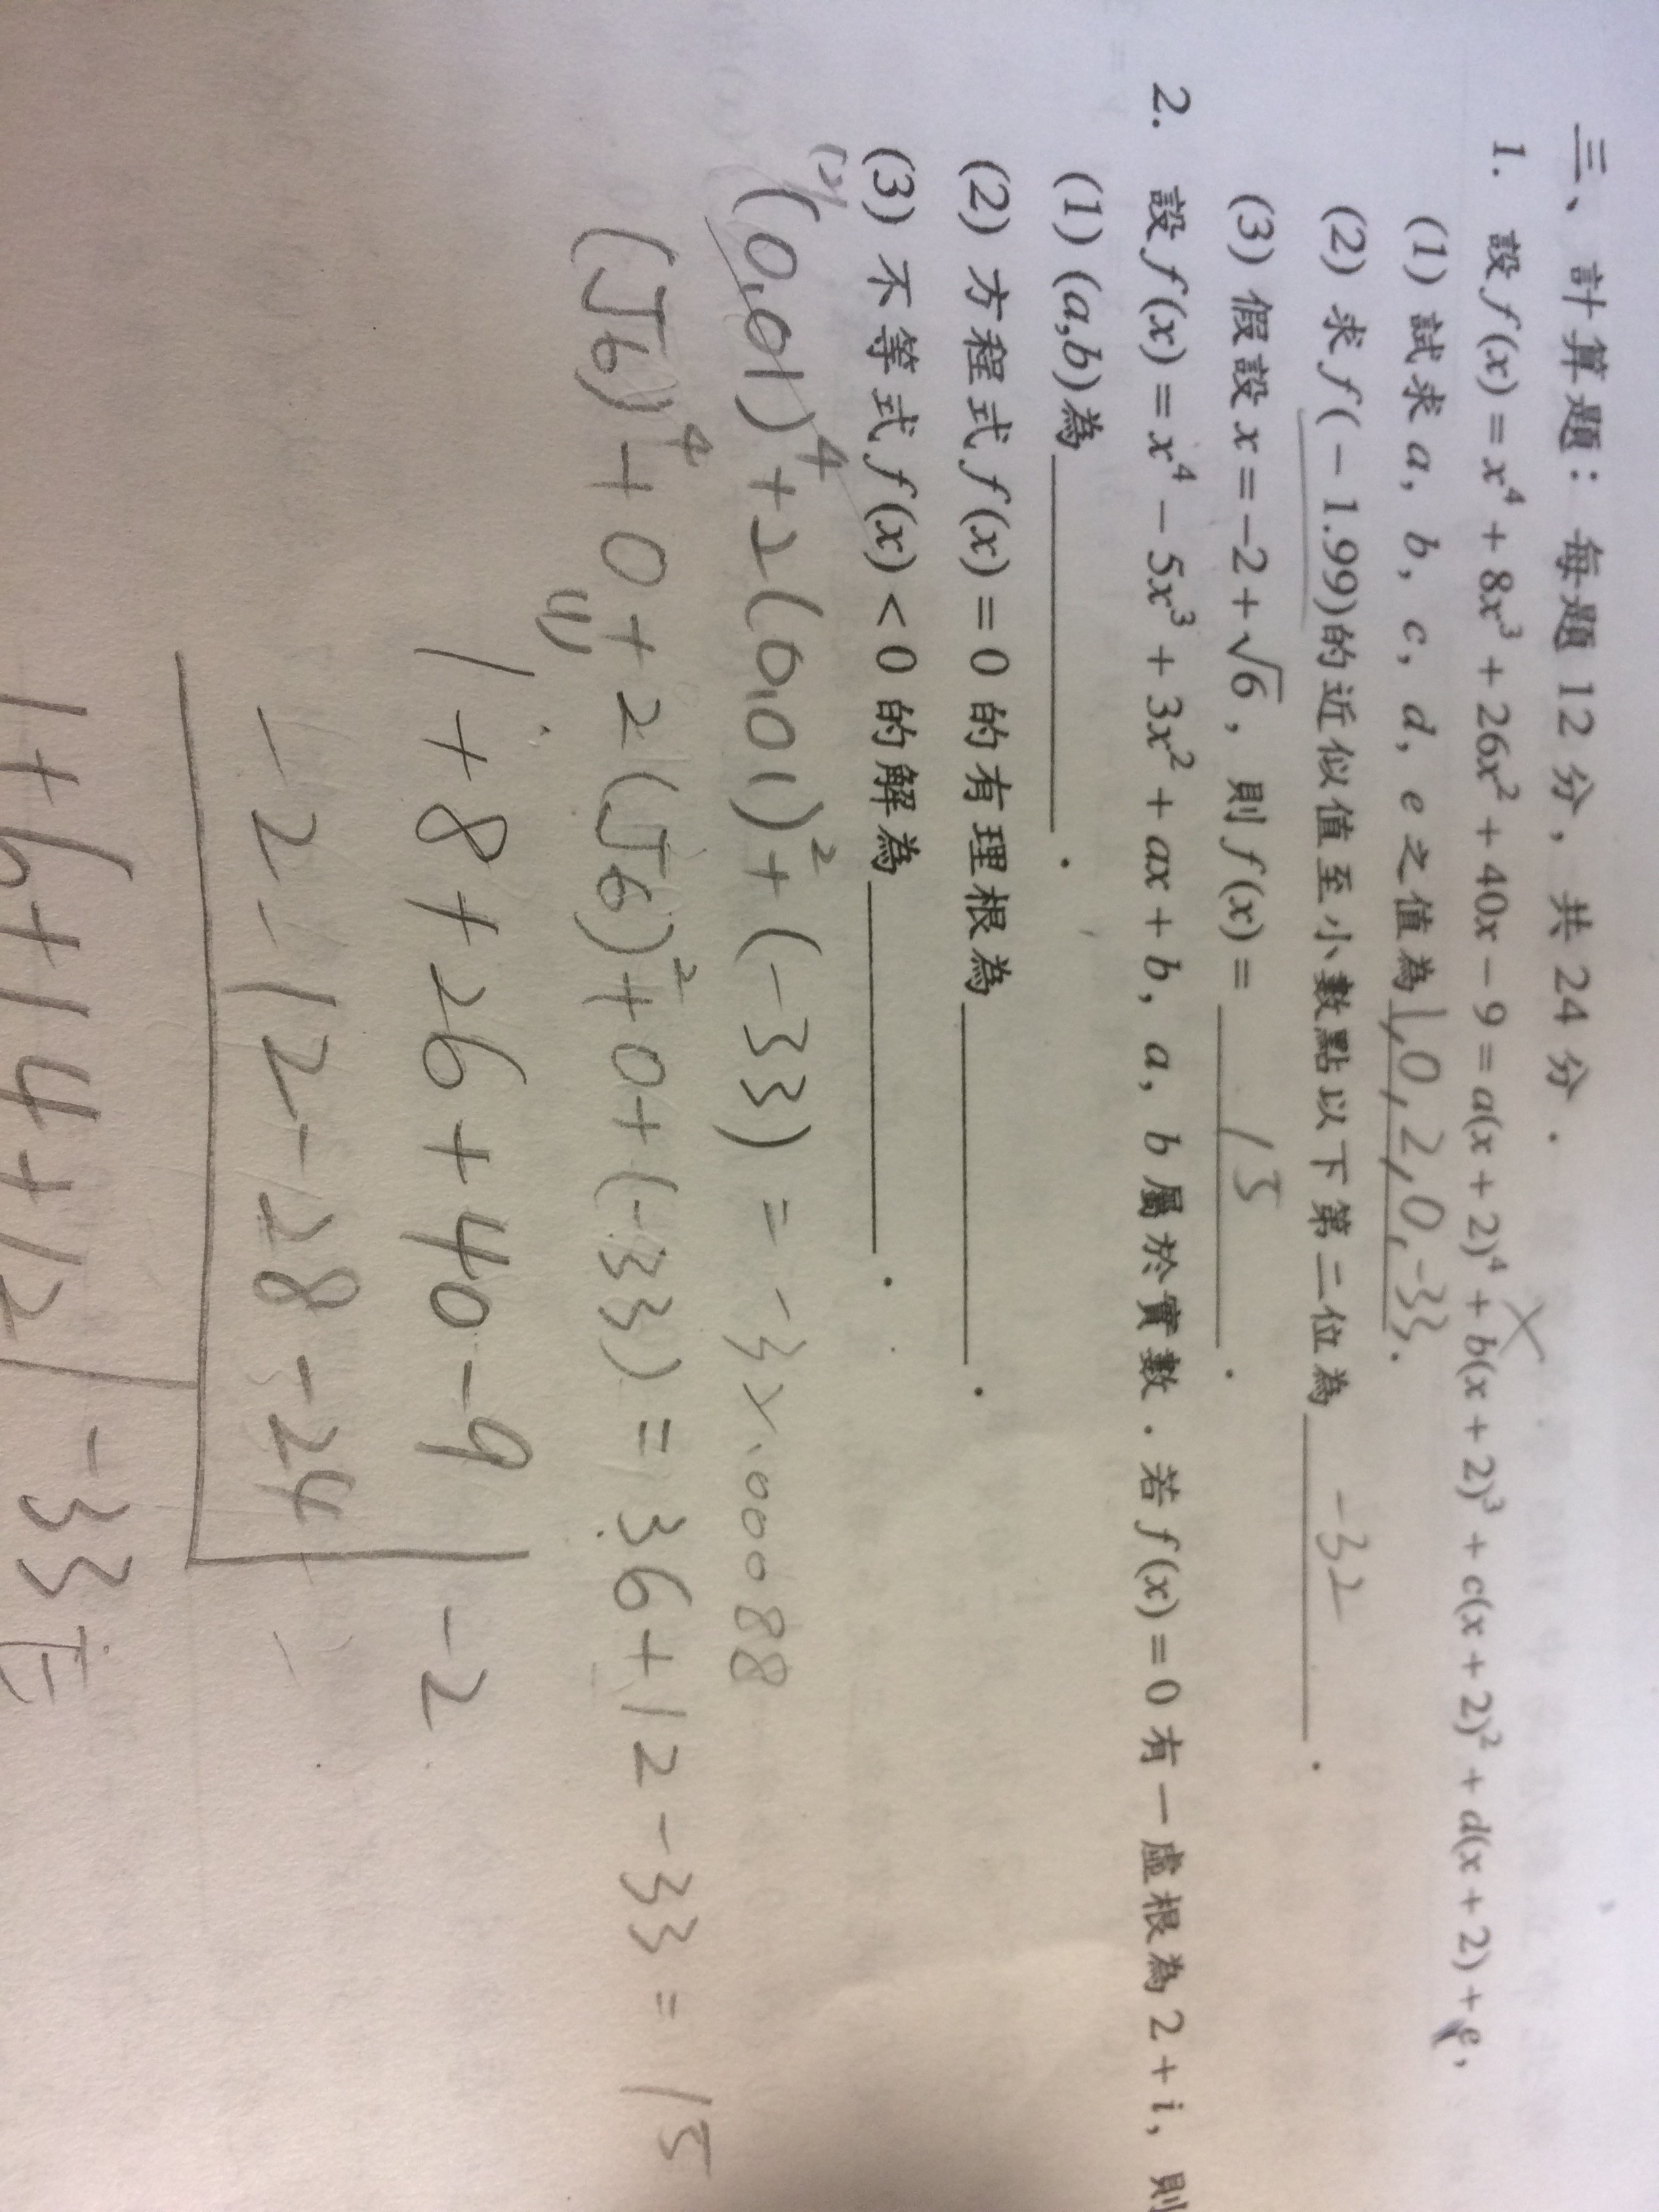 三、計算題：每題 12 分，共 24 分．
1. 設 f(x) = x⁴ + 8x³ + 26x² + 40x − 9 = a(x + 2)⁴ + b(x + 2)³ + c(x + 2)² + d(x + 2) + e，
(1) 試求 a，b，c，d，e 之值為 1,0,2,0,-33．
(2) 求 f(−1.99)的近似值至小數點以下第二位為 -32 ．
(3) 假設 x = −2 + √6，則 f(x) = 15 ．
2. 設 f(x) = x⁴ − 5x³ + 3x² + ax + b，a，b 屬於實數．若 f(x) = 0 有一虛根為 2 + i，則
(1) (a,b)為 ．
(2) 方程式 f(x) = 0 的有理根為 ．
(3) 不等式 f(x) < 0 的解為 ．
(2) (0.01)⁴ + 2(0.01)² + (-33) =
(√6)⁴ + 0 + 2(√6)² + 0 + (-33) = 36 + 12 - 33 = 15
(1)
1 + 8 + 26 + 40 - 9 | -2
-2 - 12 - 28 - 24
1 + 6 + 14 + 12 | -33